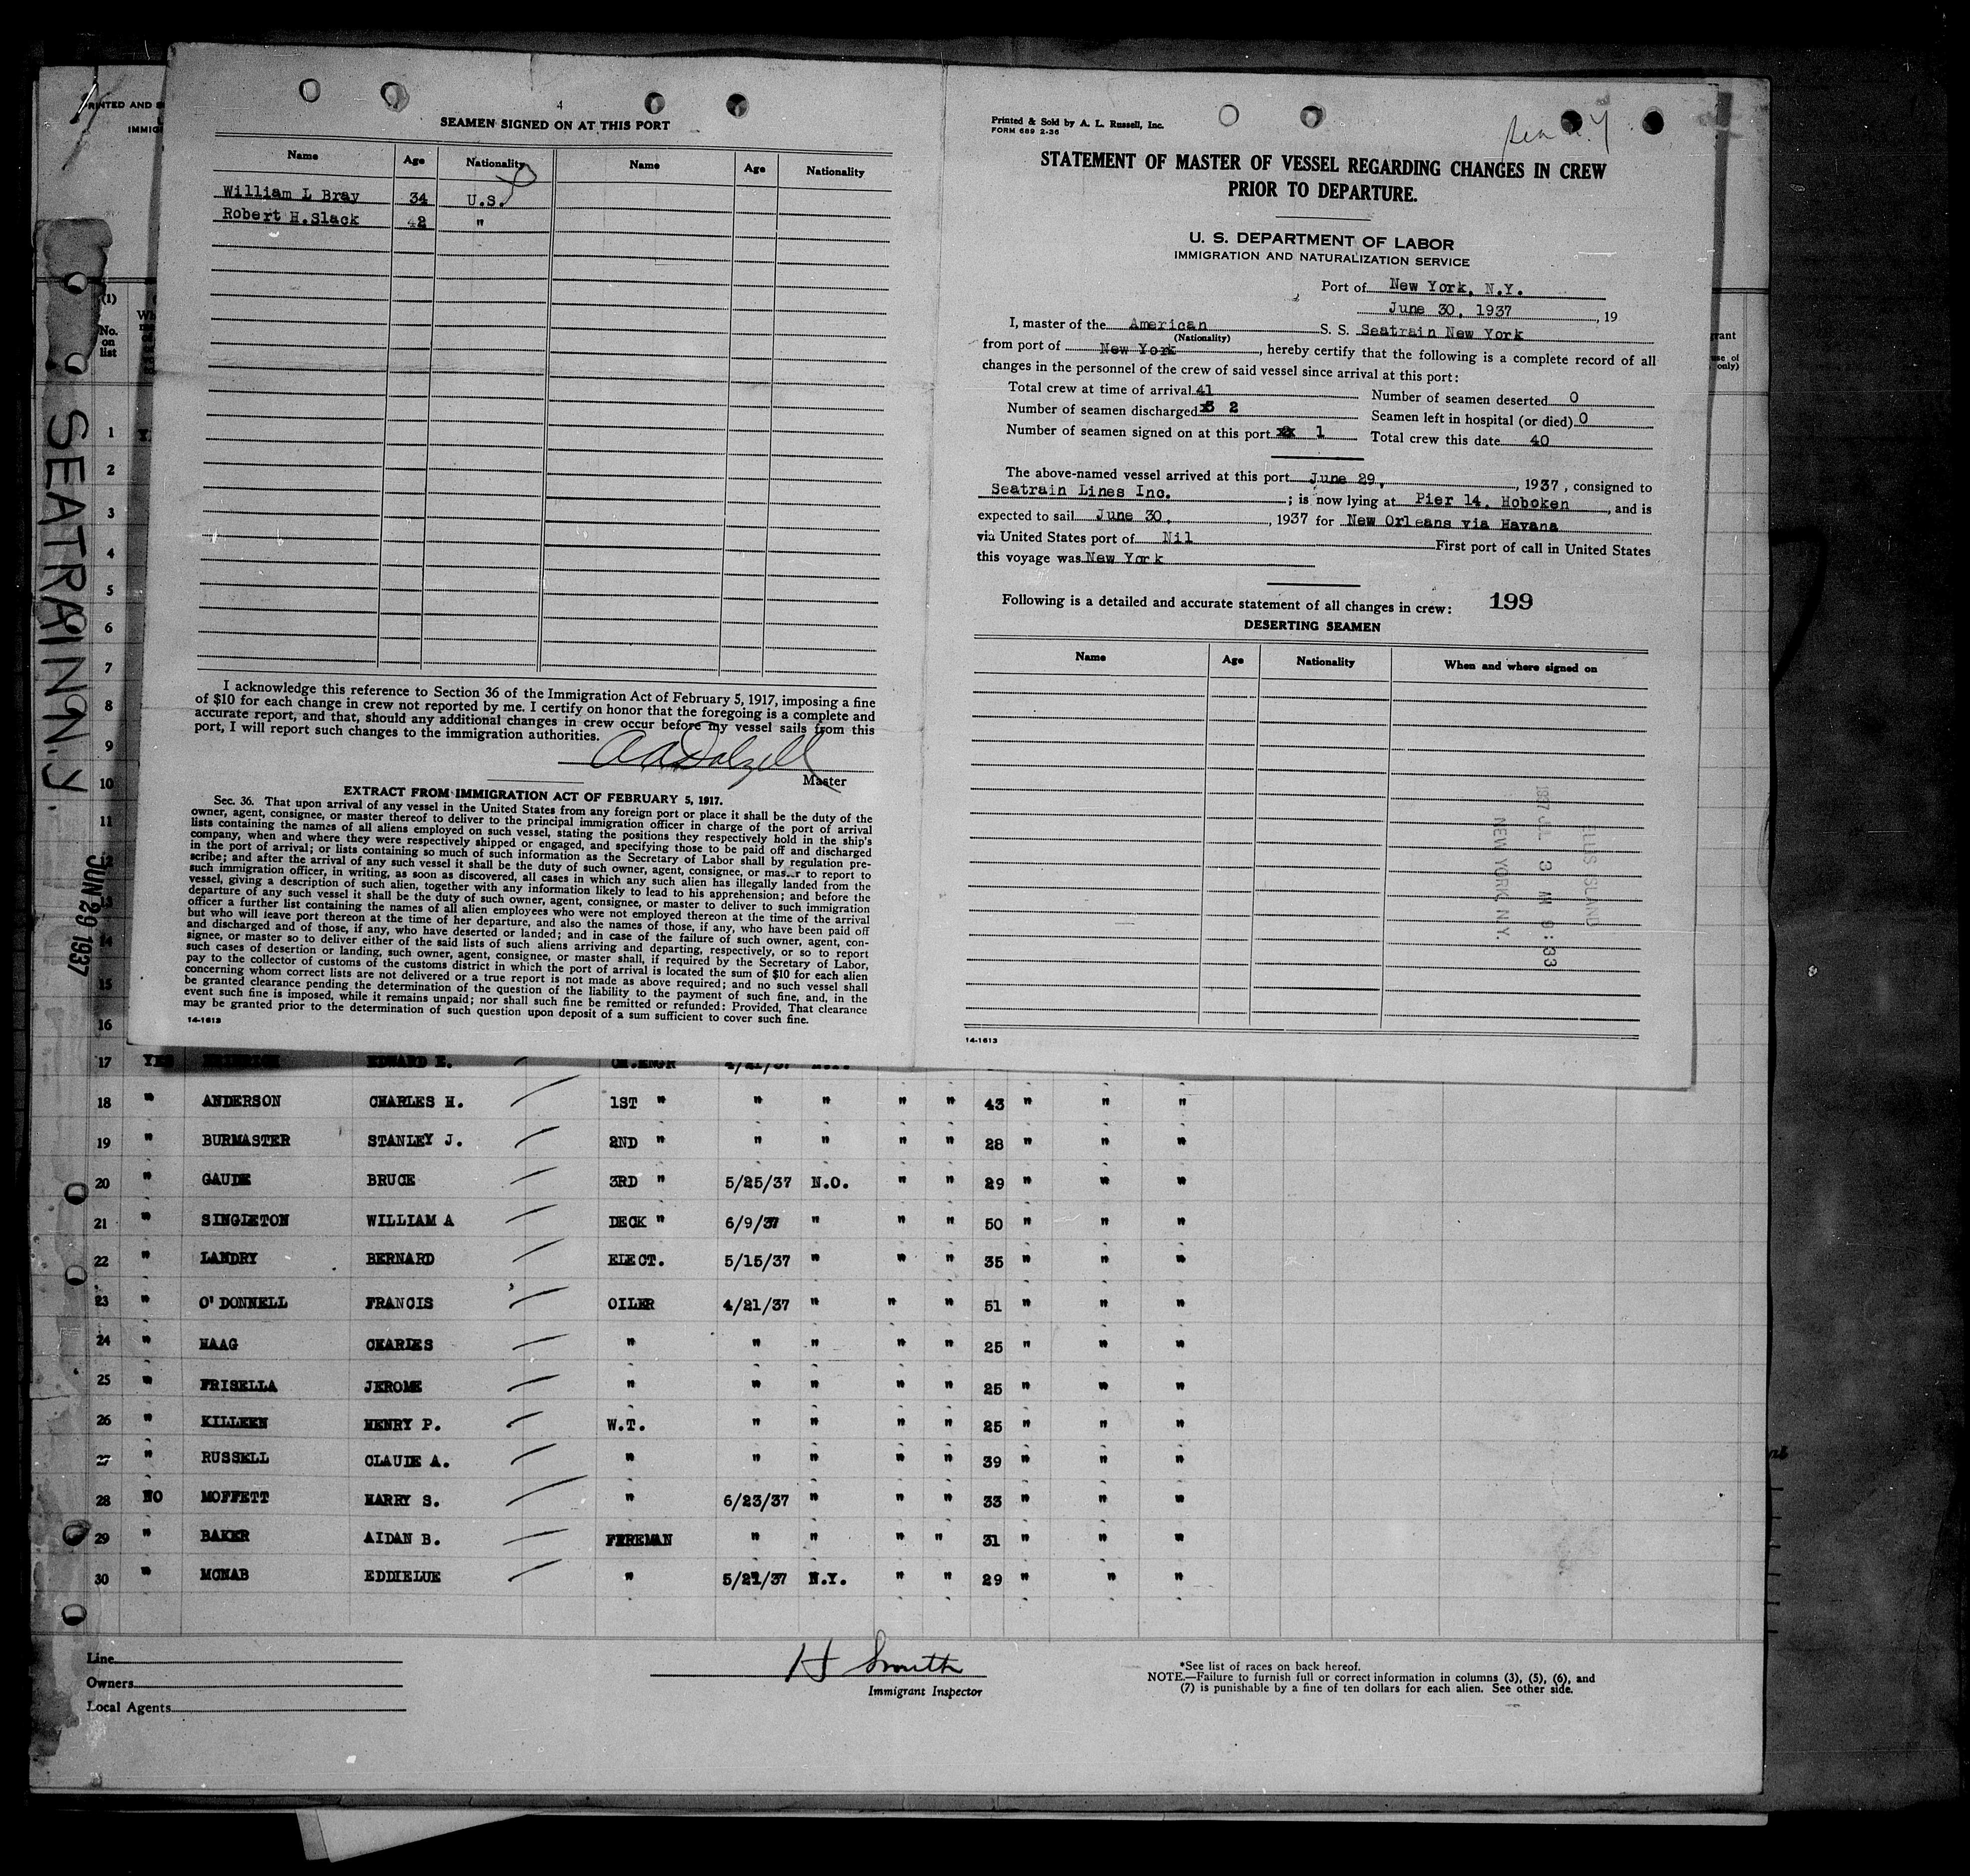 PRINTED AND S
IMMIG
(1)
No.
on
list
SEATRAIN N.Y.
JUN 29 1937
4
SEAMEN SIGNED ON AT THIS PORT
Name Age Nationality Name Age Nationality
William L Bray 34 U.S.
Robert H.Slack 42 "
I acknowledge this reference to Section 36 of the Immigration Act of February 5, 1917, imposing a fine
of $10 for each change in crew not reported by me. I certify on honor that the foregoing is a complete and
accurate report, and that, should any additional changes in crew occur before my vessel sails from this
port, I will report such changes to the immigration authorities.
A A Dalzell
Master
EXTRACT FROM IMMIGRATION ACT OF FEBRUARY 5, 1917.
Sec. 36. That upon arrival of any vessel in the United States from any foreign port or place it shall be the duty of the
owner, agent, consignee, or master thereof to deliver to the principal immigration officer in charge of the port of arrival
lists containing the names of all aliens employed on such vessel, stating the positions they respectively hold in the ship's
company, when and where they were respectively shipped or engaged, and specifying those to be paid off and discharged
in the port of arrival; or lists containing so much of such information as the Secretary of Labor shall by regulation pre-
scribe; and after the arrival of any such vessel it shall be the duty of such owner, agent, consignee, or master to report to
such immigration officer, in writing, as soon as discovered, all cases in which any such alien has illegally landed from the
vessel, giving a description of such alien, together with any information likely to lead to his apprehension; and before the
departure of any such vessel it shall be the duty of such owner, agent, consignee, or master to deliver to such immigration
officer a further list containing the names of all alien employees who were not employed thereon at the time of the arrival
but who will leave port thereon at the time of her departure, and also the names of those, if any, who have been paid off
and discharged and of those, if any, who have deserted or landed; and in case of the failure of such owner, agent, con-
signee, or master so to deliver either of the said lists of such aliens arriving and departing, respectively, or so to report
such cases of desertion or landing, such owner, agent, consignee, or master shall, if required by the Secretary of Labor,
pay to the collector of customs of the customs district in which the port of arrival is located the sum of $10 for each alien
concerning whom correct lists are not delivered or a true report is not made as above required; and no such vessel shall
be granted clearance pending the determination of the question of the liability to the payment of such fine, and, in the
event such fine is imposed, while it remains unpaid; nor shall such fine be remitted or refunded: Provided, That clearance
may be granted prior to the determination of such question upon deposit of a sum sufficient to cover such fine.
14-1613
Printed & Sold by A. L. Russell, Inc.
FORM 689 2-36
STATEMENT OF MASTER OF VESSEL REGARDING CHANGES IN CREW
PRIOR TO DEPARTURE.
U. S. DEPARTMENT OF LABOR
IMMIGRATION AND NATURALIZATION SERVICE
Port of New York, N.Y.
June 30, 1937, 19
I, master of the American S. S. Seatrain New York
(Nationality)
from port of New York, hereby certify that the following is a complete record of all
changes in the personnel of the crew of said vessel since arrival at this port:
Total crew at time of arrival 41 Number of seamen deserted 0
Number of seamen discharged 2 Seamen left in hospital (or died) 0
Number of seamen signed on at this port 1 Total crew this date 40
The above-named vessel arrived at this port June 29, , 1937, consigned to
Seatrain Lines Inc. ; is now lying at Pier 14, Hoboken, and is
expected to sail June 30, , 1937 for New Orleans via Havana
via United States port of Nil First port of call in United States
this voyage was New York
Following is a detailed and accurate statement of all changes in crew: 199
DESERTING SEAMEN
Name Age Nationality When and where signed on
ELLIS ISLAND
1937 JUL 3 AM 9:33
NEW YORK, N.Y.
14-1613
grant
use of
only)
1
2
3
4
5
6
7
8
9
10
11
12
13
14
15
16
17 YES EDWARD E. CH.ENGR 4/21/37
18 " ANDERSON CHARLES H. 1ST " " " " " 43 " " "
19 " BURMASTER STANLEY J. 2ND " " " " " 28 " " "
20 " GAUDE BRUCE 3RD " 5/25/37 N.O. " " 29 " " "
21 " SINGLETON WILLIAM A DECK " 6/9/37 " " " 50 " " "
22 " LANDRY BERNARD ELECT. 5/15/37 " " " 35 " " "
23 " O'DONNELL FRANCIS OILER 4/21/37 " " " 51 " " "
24 " HAAG CHARLES " " " " " 25 " " "
25 " FRISELLA JEROME " " " " " 25 " " "
26 " KILLEEN HENRY P. W.T. " " " " 25 " " "
27 " RUSSELL CLAUDE A. " " " " " 39 " " "
28 NO MOFFETT HARRY S. " 6/23/37 " " " 33 " " "
29 " BAKER AIDAN B. FIREMAN " " " " 31 " " "
30 " MCNAB EDDIELUE " 5/21/37 N.Y. " " 29 " " "
Line
Owners
Local Agents
H Smith
Immigrant Inspector
*See list of races on back hereof.
NOTE.—Failure to furnish full or correct information in columns (3), (5), (6), and
(7) is punishable by a fine of ten dollars for each alien. See other side.